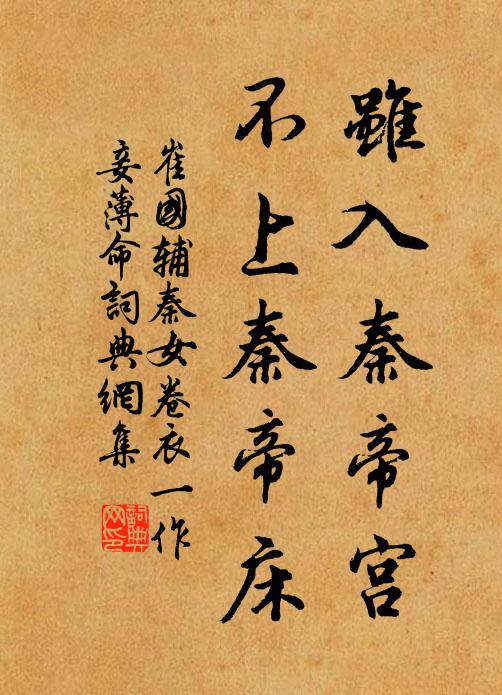 雖入秦帝宮
不上秦帝床
崔國輔秦女卷衣一作
妾薄命詞典網集
詞典
网印